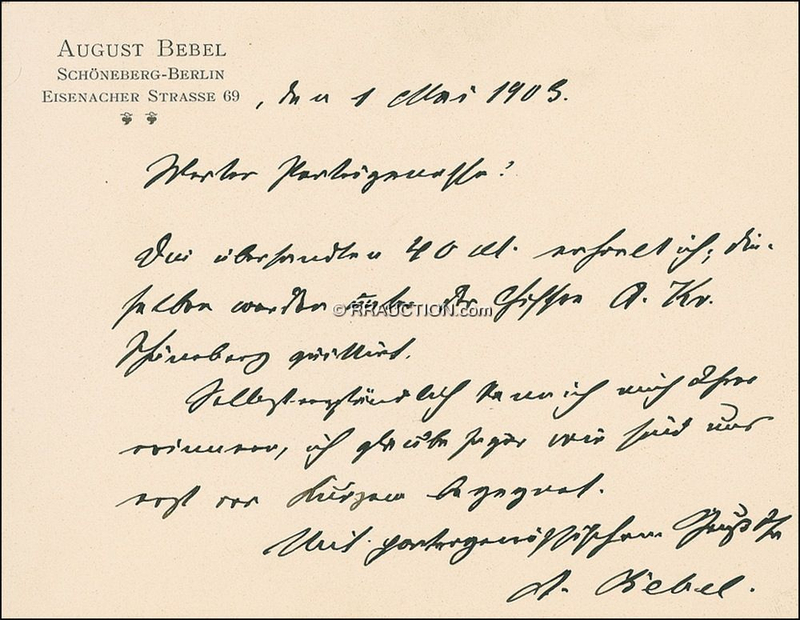 AUGUST BEBEL
SCHÖNEBERG-BERLIN
EISENACHER STRASSE 69
, den 1 Mai 1903.
Werter Parteigenosse!
Die übersandten 40 M. erhielt ich; die-
selben werden unter der Chiffre A. Kr.
Schöneberg quittirt.
Selbstverständlich kann ich mich Ihrer
erinnern, ich glaube sogar wir sind uns
erst vor Kurzem begegnet.
Mit parteigenössischem Gruß Ihr
A. Bebel.
© RRAUCTION.com